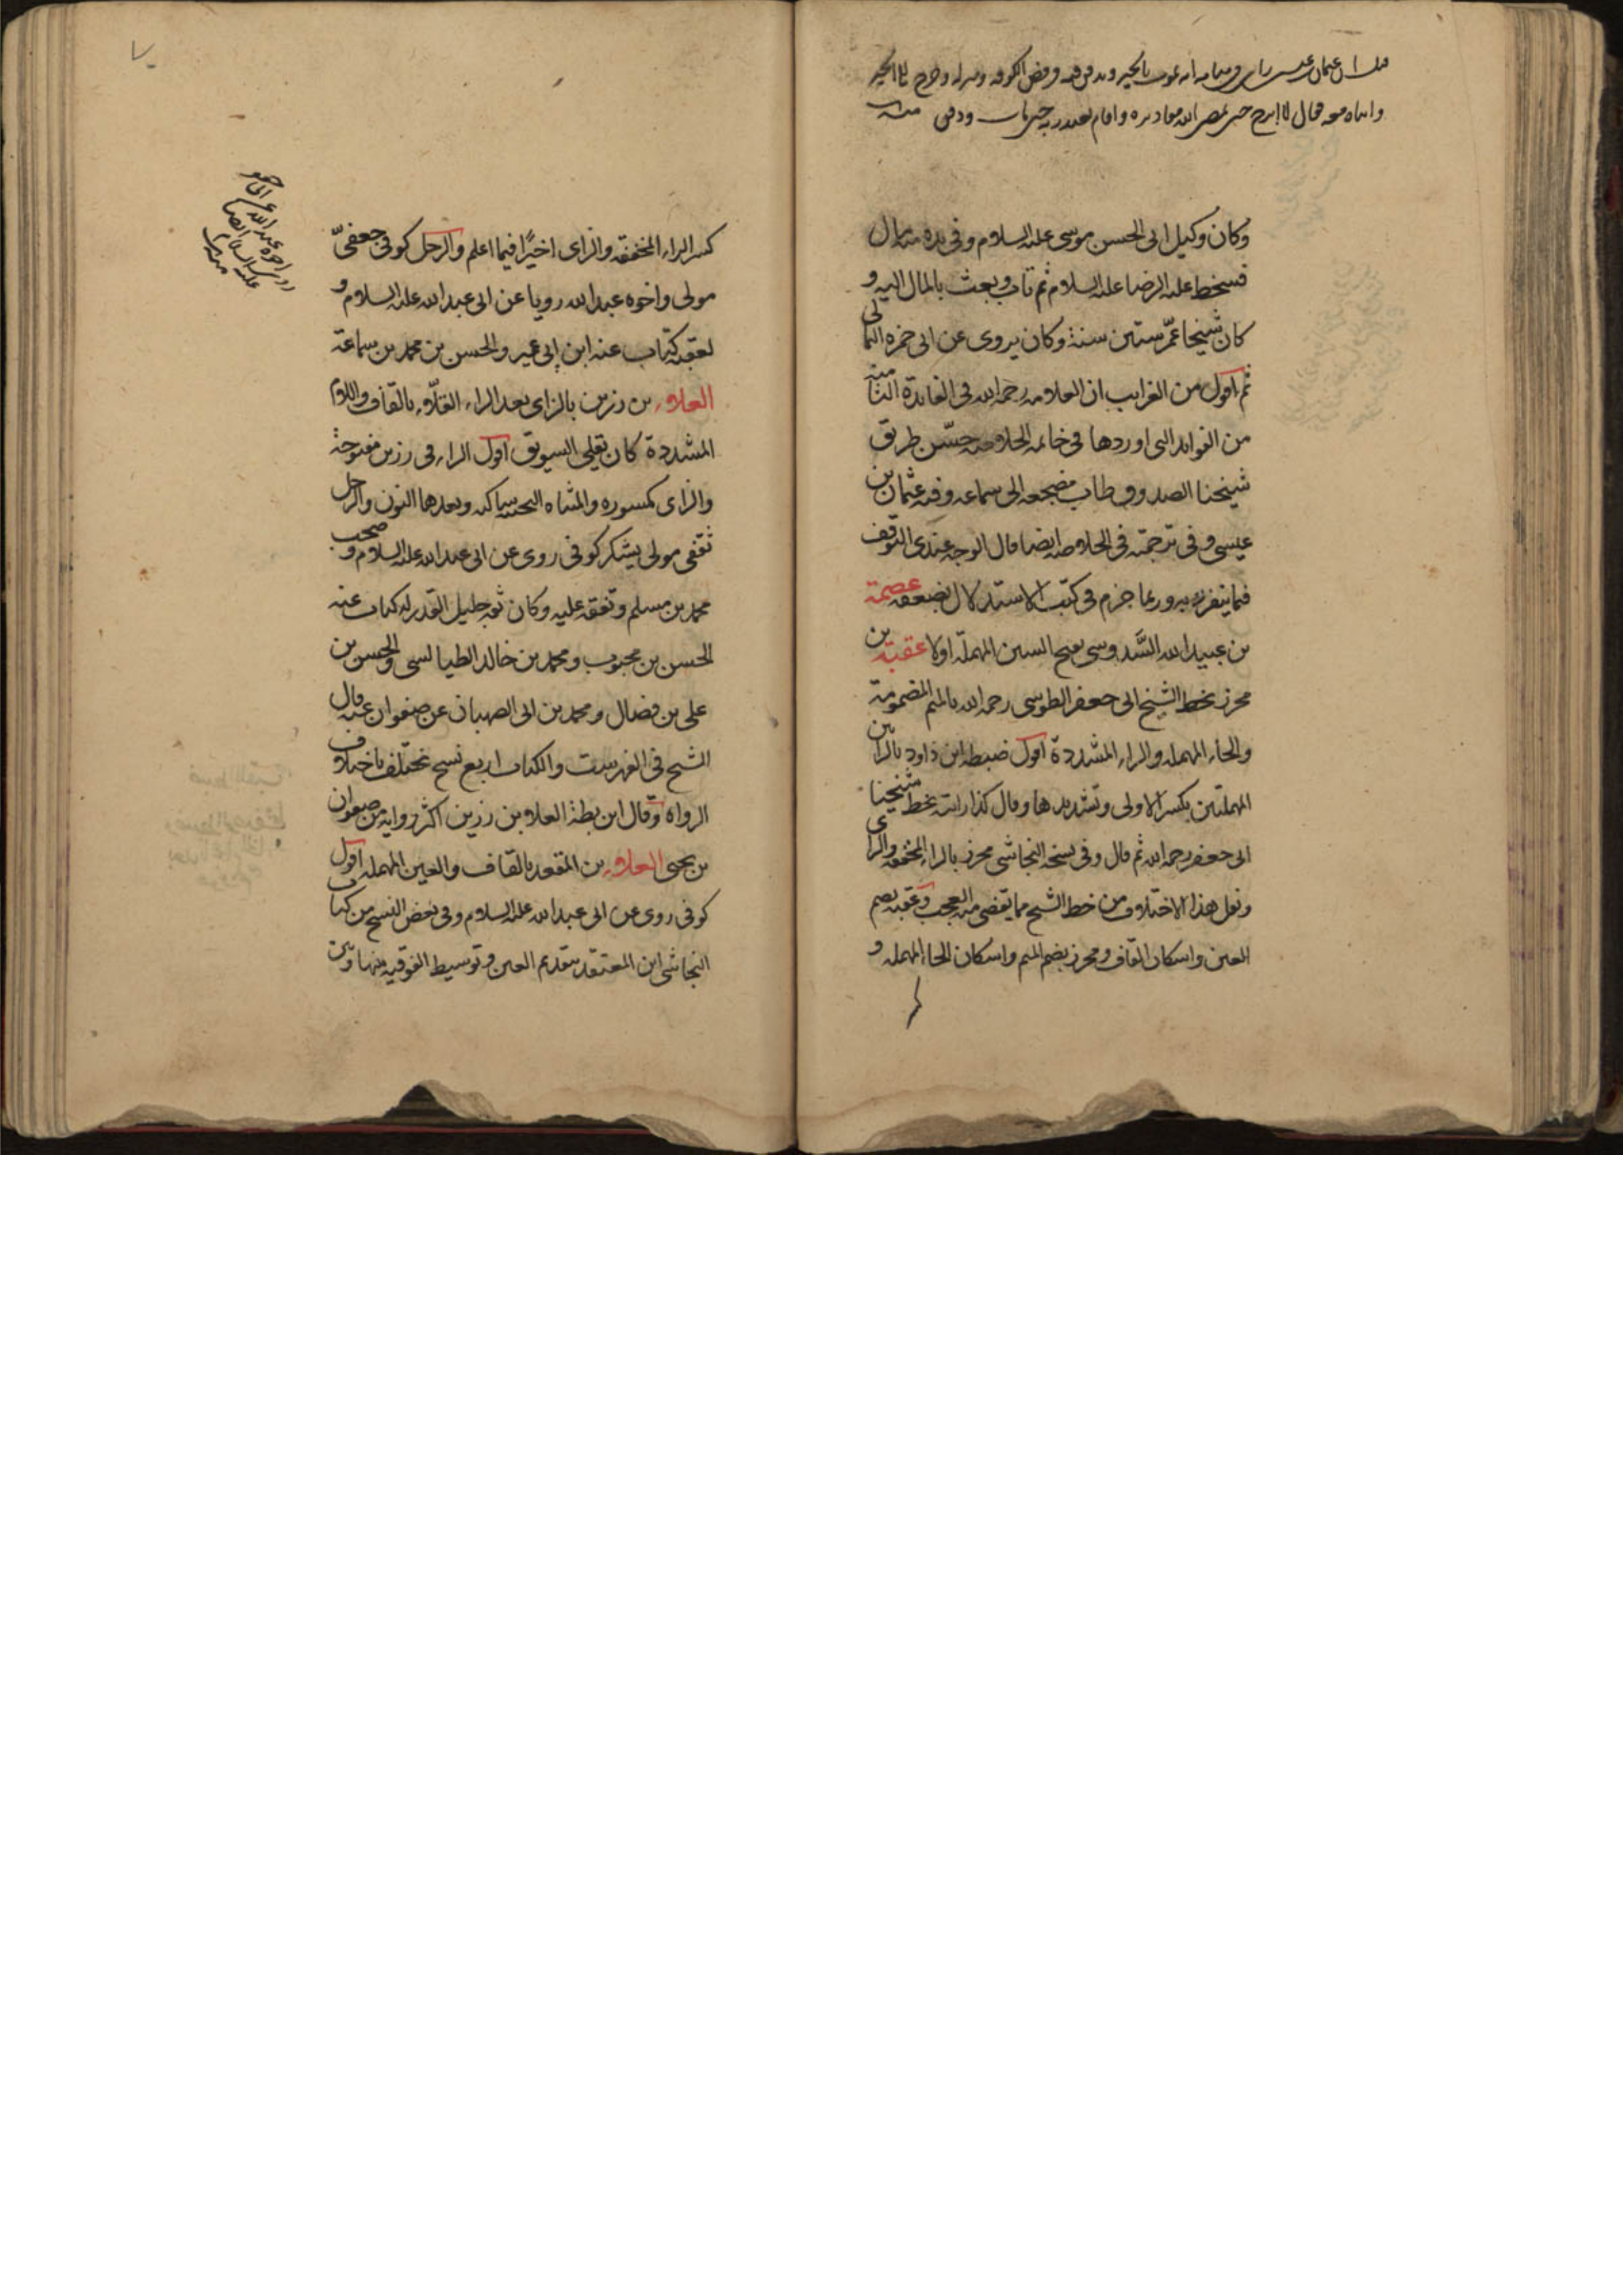 وكان وكيل ابى الحسن موسى عليه السلام وفى يده مال
فسخط عليه الرضا عليه السلام ثم تاب وبعث بالمال اليه و
كان شيخا عمّر ستين سنة وكان يروى عن ابى حمزه الثمالى
ثم اقول من الغرايب ان العلامه رحمه الله فى الفايدة الثامنة
من الفوايد التى اوردها فى خاتمه الخلاصه حسّن طريق
شيخنا الصدوق طاب مضجعه الى سماعه وفيه عثمان بن
عيسى وفى ترجمته فى الخلاصه ايضا قال الوجه عندى التوقف
فيما يتفرد به وربما جزم فى كتب الاستدلال بضعفه عصمة
بن عبيد الله السَّدوسى بفتح السين المهملة اولا عقبة بن
محرز بخط الشيخ ابى جعفر الطوسى رحمه الله بالميم المضمومة
والحاء المهمله والراء المشددة اقول ضبطه ابن داود بالرائين
المهملتين بكسر الاولى وتشديدها وقال كذا رايته بخط شيخنا
ابى جعفر رحمه الله ثم قال وفى نسخه النجاشى محرز بالراء المخففه والزاى
ونقل هذا الاختلاف من خط الشيخ مما يقضى منه العجب وعقبه بضم
العين واسكان القاف ومحرز بضم الميم واسكان الحاء المهمله و
كسر الراء المخففه والزاى اخيرًا فيما اعلم والرجل كوفى جعفىّ
مولى واخوه عبد الله رويا عن ابى عبد الله عليه السلام و
لعقبه كتاب عنه ابن ابى عمير والحسن بن محمد بن سماعة
العلاء بن رزين بالزاى بعد الراء القلّاء بالقاف واللام
المشددة كان يقلى السويق اقول الراء فى رزين مفتوحة
والزاى مكسوره والمثناه التحتيه ساكنه وبعدها النون والرجل
ثقفى مولى يشكر كوفى روى عن ابى عبد الله عليه السلام وصحب
محمد بن مسلم وتفقه عليه وكان ثقه جليل القدر له كتاب عنه
الحسن بن محبوب ومحمد بن خالد الطيالسى والحسن بن
على بن فضال ومحمد بن ابى الصهبان عن صفوان عنه قال
الشيخ فى الفهرست والكتاب اربع نسخ تختلف باختلاف
الرواه وقال ابن بطة العلاء بن رزين اكثر رواية من صفوان
بن يحيى العلاء بن المقعد بالقاف والعين المهمله اقول
كوفى روى عن ابى عبد الله عليه السلام وفى بعض النسخ من كتاب
النجاشى ابن المعتقد بتقديم العين وتوسيط الفوقيه بينها وبين